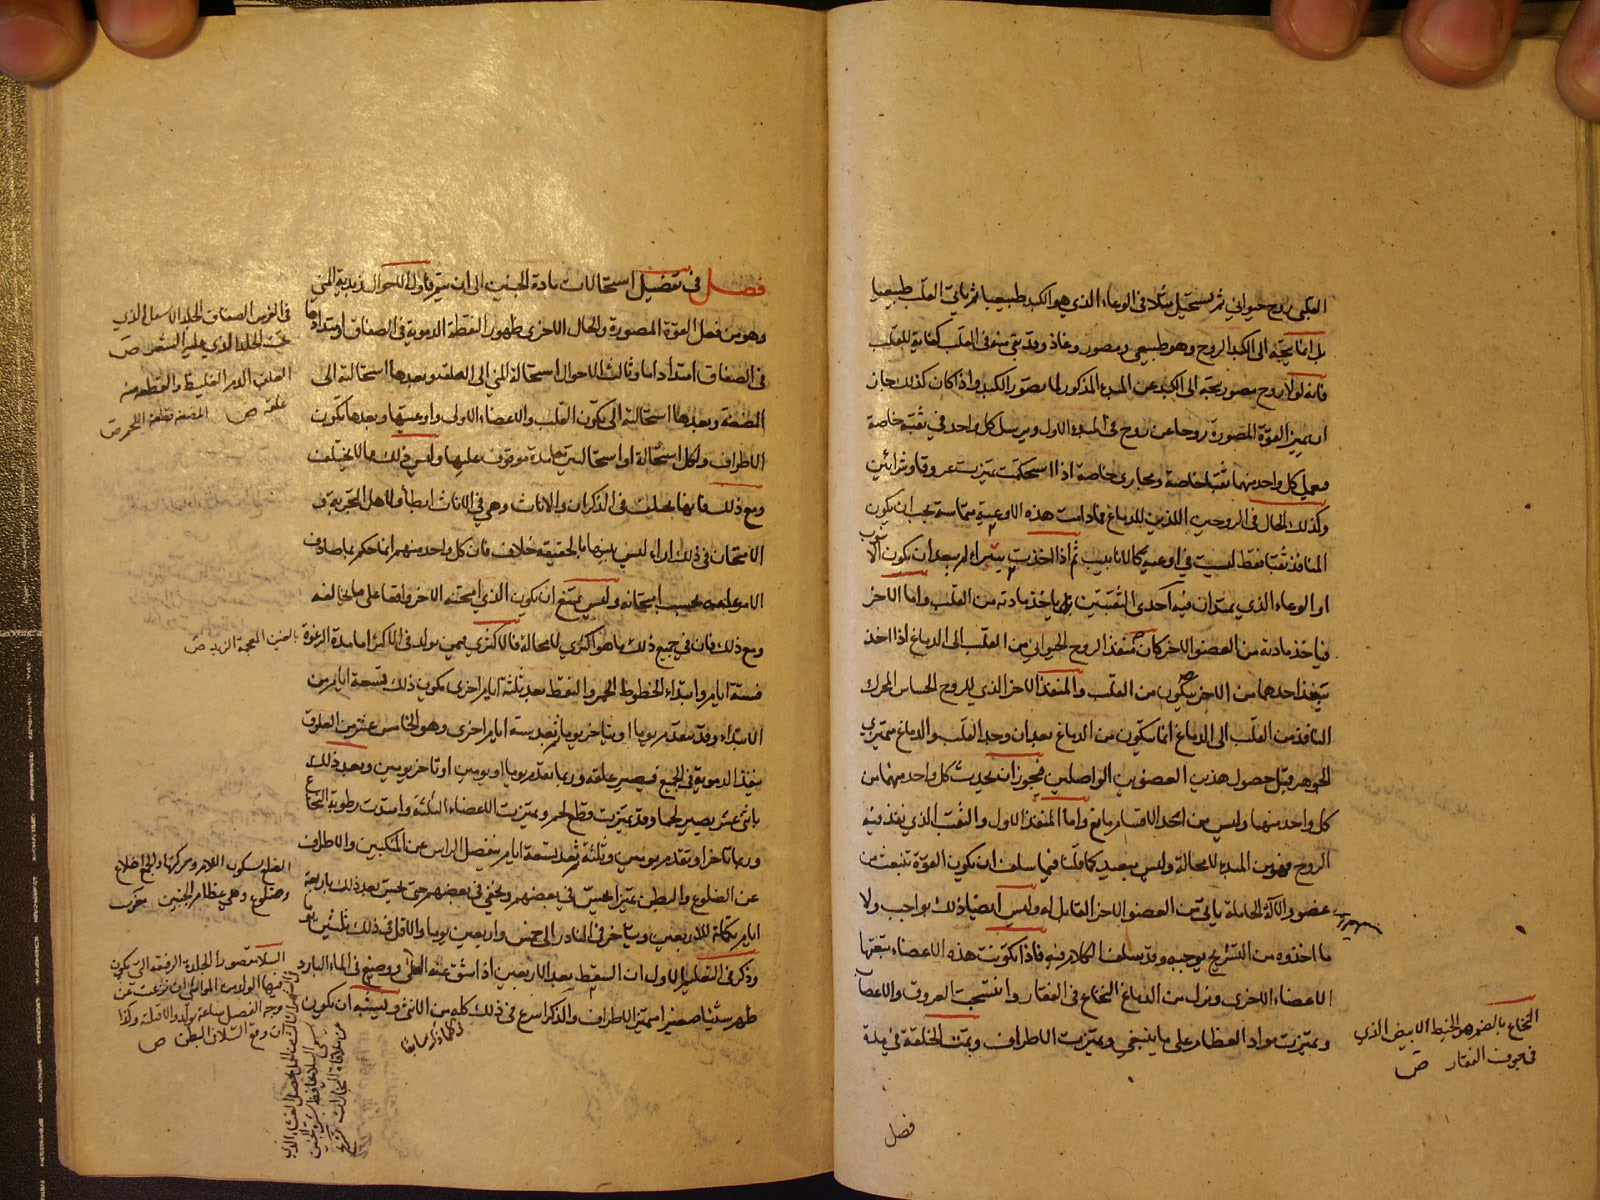 القلبى روح حيوانى ثم يستحيل مثلا فى الوعاء الذى هو الكبد طبيعيا ثم يأتى القلب طبيعيا
بل انما يتجه الى الكبد الروح وهو طبيعى ومصور وغاذ وقد بقى منه فى القلب كفاية للقلب
فانه لولا روح مصور يتجه الى الكبد عن المبدء المذكور لما تصور الكبد واذا كان كذلك جاز
ان يميز القوة المصورة روحا عن روح فى المبدء الاول ويرسل كل واحد فى ثقبة خاصة
ويعمل كل واحد منهما ثقبا خاصة ومجارى خاصة اذا استحكمت تميزت عروقا وشرائين
وكذلك الحال فى الروحين اللذين للدماغ فمادامت هذه الاوعية متماسة يجب ان يكون
المنافذ ثقبا فقط ليست فى اوعية كالانابيب ثم اذا اخذت يتبرأ لم يبعد ان يكون
او الوعاء الذى يمتدان فيه احدى الثقبتين بل يأخذ مادته من القلب واما الآخر
فيأخذ مادته من العضو الآخر كان منفذ الروح الحيوانى من القلب الى الدماغ اذا اخذ
يتخذ احدهما من الآخر يتكون من القلب والمنفذ الآخر الذى للروح الحساس المحرك
النافذ من القلب الى الدماغ انما يتكون من الدماغ بعد ان وجد القلب والدماغ متميزى
الجوهر وقبل حصول هذين العضوين الواصلين فيجوز ان يحدث كل واحد منهما من
كل واحد منهما وليس من اتحد الاقسام مانع واما المنفذ الاول والثقب الذى نفذ فيه
الروح فهو من المبدء لا محالة وليس ببعيد كما قلنا فيما سلف ان يكون القوة تنبعث من
عضو والآلة الحاملة يأتى من العضو الآخر القابل له وليس ايضا ذلك بواجب ولا
ما اخذوه من التشريح يوجبه وقد سلف الكلام فيه فاذا تكونت هذه الاعضاء تبعتها
الاعضاء الاخرى ونزل من الدماغ النخاع فى الفقار وانتسجت العروق والاعصاب
وتميزت مواد العظام على ما ينبغى وتميزت الاطراف وتمت الخلقة فى مدة
النخاع بالضم هو الخيط الابيض الذى
فى جوف الفقار ص
فصل
فصل فى تفصيل استحالات مادة الجنين الى ان يتم فاول الاحوال زبدية المنى
وهو من فعل القوة المصورة والحال الاخرى ظهور النقطة الدموية فى الصفاق وامتدادها
فى الصفاق امتدادا ما وثالث الاحوال استحالة المنى الى العلقة وبعدها استحالته الى
المضغة وبعدها استحالته الى تكون القلب والاعضاء الاولى واوعيتها وبعدها تكون
الاطراف ولكل استحالة او استحالتين معا مدة موقوف عليها وليس ذلك مما لا يختلف
ومع ذلك فانها يختلف فى الذكران والاناث وهى فى الاناث ابطأ ولاهل التجربة و
الامتحان فى ذلك اراء ليس بينها بالحقيقة خلاف فان كل واحد منهم انما حكم بما صادف
الامر عليه بحسب امتحانه وليس يمتنع ان يكون الذى امتحنه الآخر واقعا على ما يخالفه
ومع ذلك فان فى جميع ذلك ما هو اكثرى لا محالة فالاكثرى فيمن يولد فى الاكثر اما مدة الرغوة
فستة ايام وابتداء الخطوط الحمر والنقط بعد ثلثة ايام اخرى فيكون ذلك تسعة ايام من
الابتداء وقد يتقدم يوما او يتأخر يوما ثم بعد ستة ايام اخرى وهو الخامس عشر من العلوق
ينفذ الدموية فى الجميع فيصير علقة وربما تقدم يوما او يومين او تأخر يومين وبعد ذلك
باثنى عشر يصير لحما وقد تميزت قطع لحم وتميزت الاعضاء الثلثة وامتدت رطوبة النخاع
وربما تأخر او تقدم يومين وثلثة ثم بعد تسعة ايام ينفصل الراس عن المنكبين والاطراف
عن الضلوع والبطن تميزا يحس فى بعضهم ويخفى فى بعضهم حتى يحس بعد ذلك باربعة
ايام تكملة للاربعين ويتأخر فى النادر الى خمس واربعين يوما والاقل فى ذلك ثلثين يوما
وذكر فى التعليم الاول ان السقط بعد الاربعين اذا شق عنه السلى ووضع فى الماء البارد
ظهر شيئا صغيرا متميز الاطراف والذكر اسرع فى ذلك كله من الانثى وليشبه ان يكون
فى الفرس الصفاق الجلد الاسفل الذى
تحت الجلد الذى عليه الشعر ص
العلق الدم الغليظ والقطعة منه
علقة ص المضغة قطعة اللحم ص
بالغين المعجمة الزبد ص
الضلع بسكون اللام وحركتها والجمع اضلاع
وضلوع وهى عظام الجنبين
السلا مقصورا الجلدة الرقيقة التى يكون
فيها الولد من المواشى ان نزعت عن
وجه الفصيل ساعة يولد والا قتلته وكذا
ان وقع السلا فى البطن ص